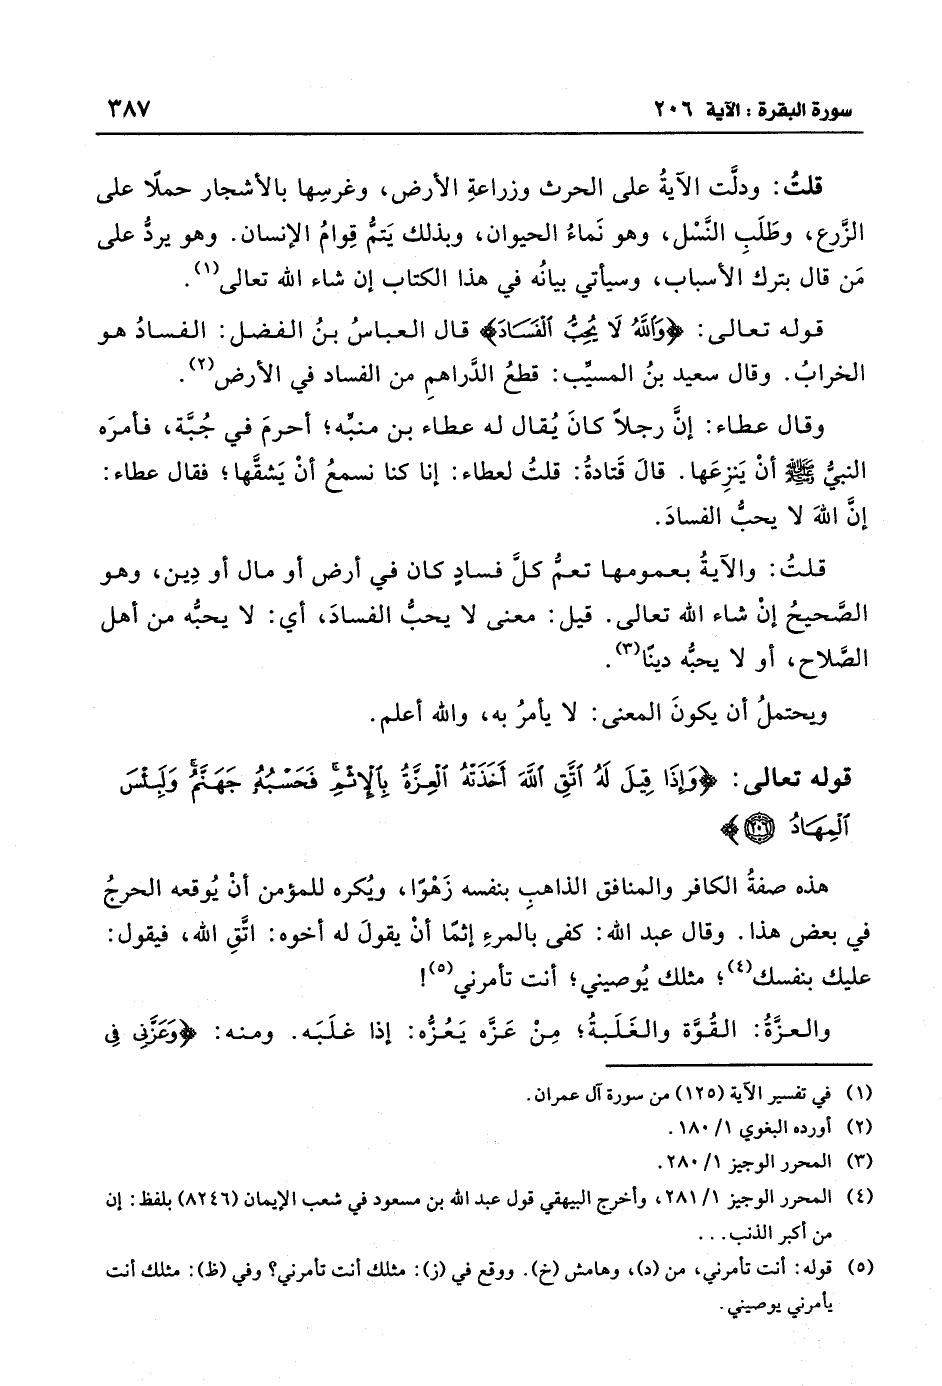 سورة البقرة : الآية ٢٠٦ ٣٨٧
قلتُ: ودلَّت الآيةُ على الحرث وزراعةِ الأرض، وغرسِها بالأشجار حملًا على
الزَّرع، وطَلَبِ النَّسْل، وهو نَماءُ الحيوان، وبذلك يَتمُّ قِوامُ الإنسان. وهو يردُّ على
مَن قال بترك الأسباب، وسيأتي بيانُه في هذا الكتاب إن شاء الله تعالى(١).
قوله تعالى: ﴿وَٱللَّهُ لَا يُحِبُّ ٱلْفَسَادَ﴾ قال العباسُ بنُ الفضل: الفسادُ هو
الخرابُ. وقال سعيد بنُ المسيِّب: قطعُ الدَّراهمِ من الفساد في الأرض(٢).
وقال عطاء: إنَّ رجلاً كانَ يُقال له عطاء بن منبِّه؛ أحرمَ في جُبَّة، فأمرَه
النبيُّ ﷺ أنْ يَنزِعَها. قالَ قَتادةُ: قلتُ لعطاء: إنا كنا نسمعُ أنْ يَشقَّها؛ فقال عطاء:
إنَّ اللهَ لا يحبُّ الفسادَ.
قلتُ: والآيةُ بعمومها تعمُّ كلَّ فسادٍ كان في أرض أو مال أو دِين، وهو
الصَّحيحُ إنْ شاء الله تعالى. قيل: معنى لا يحبُّ الفسادَ، أي: لا يحبُّه من أهل
الصَّلاح، أو لا يحبُّه دينًا(٣).
ويحتملُ أن يكونَ المعنى: لا يأمرُ به، والله أعلم.
قوله تعالى: ﴿وَإِذَا قِيلَ لَهُ ٱتَّقِ ٱللَّهَ أَخَذَتْهُ ٱلْعِزَّةُ بِٱلْإِثْمِ ۚ فَحَسْبُهُۥ جَهَنَّمُ ۚ وَلَبِئْسَ
ٱلْمِهَادُ ۝٢٠٦﴾
هذه صفةُ الكافر والمنافق الذاهبِ بنفسه زَهْوًا، ويُكره للمؤمن أنْ يُوقعه الحرجُ
في بعض هذا. وقال عبد الله: كفى بالمرءِ إثمًا أنْ يقولَ له أخوه: اتَّقِ الله، فيقول:
عليك بنفسك(٤)؛ مثلك يُوصيني؛ أنت تأمرني(٥)!
والعزَّةُ: القُوَّة والغَلَبةُ؛ مِنْ عَزَّه يَعُزُّه: إذا غلَبَه. ومنه: ﴿وَعَزَّنِى فِى
(١) في تفسير الآية (١٢٥) من سورة آل عمران.
(٢) أورده البغوي ١/ ١٨٠.
(٣) المحرر الوجيز ١/ ٢٨٠.
(٤) المحرر الوجيز ١/ ٢٨١، وأخرج البيهقي قول عبد الله بن مسعود في شعب الإيمان (٨٢٤٦) بلفظ: إن
من أكبر الذنب...
(٥) قوله: أنت تأمرني، من (د)، وهامش (خ). ووقع في (ز): مثلك أنت تأمرني؟ وفي (ظ): مثلك أنت
يأمرني يوصيني.